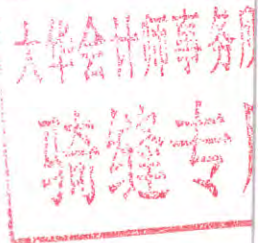 大华会计师事务所
骑缝专